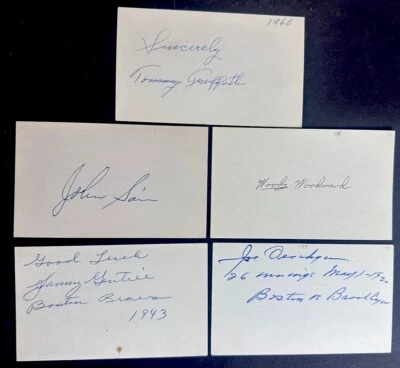 1966
Sincerely
Tommy Griffith
John Sain
Woody Woodward
Good Luck
Sammy Gentile
Boston Braves
1943
Joe Oeschger
26 innings May 1-1920
Boston vs Brooklyn